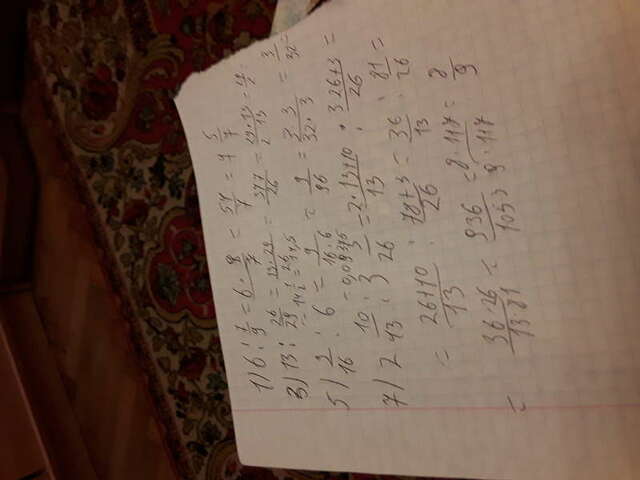 1) 6 : 7/9 = 6 · 9/7 = 54/7 = 7 5/7
3) 13 : 26/29 = 13 · 29/26 = 377/26 = 29 · 13/2 · 13 = 29/2
= 14 1/2 = 14,5
5) 9/16 : 6 = 9/16 · 6 = 9/96 = 3 · 3/32 · 3 = 3/32 =
= 0,09375
7) 2 10/13 : 3 3/26 = 2 · 13+10/13 : 3 · 26+3/26 =
= 26+10/13 : 78+3/26 = 36/13 : 81/26 =
= 36 · 26/13 · 81 = 936/1053 = 8 · 117/9 · 117 = 8/9